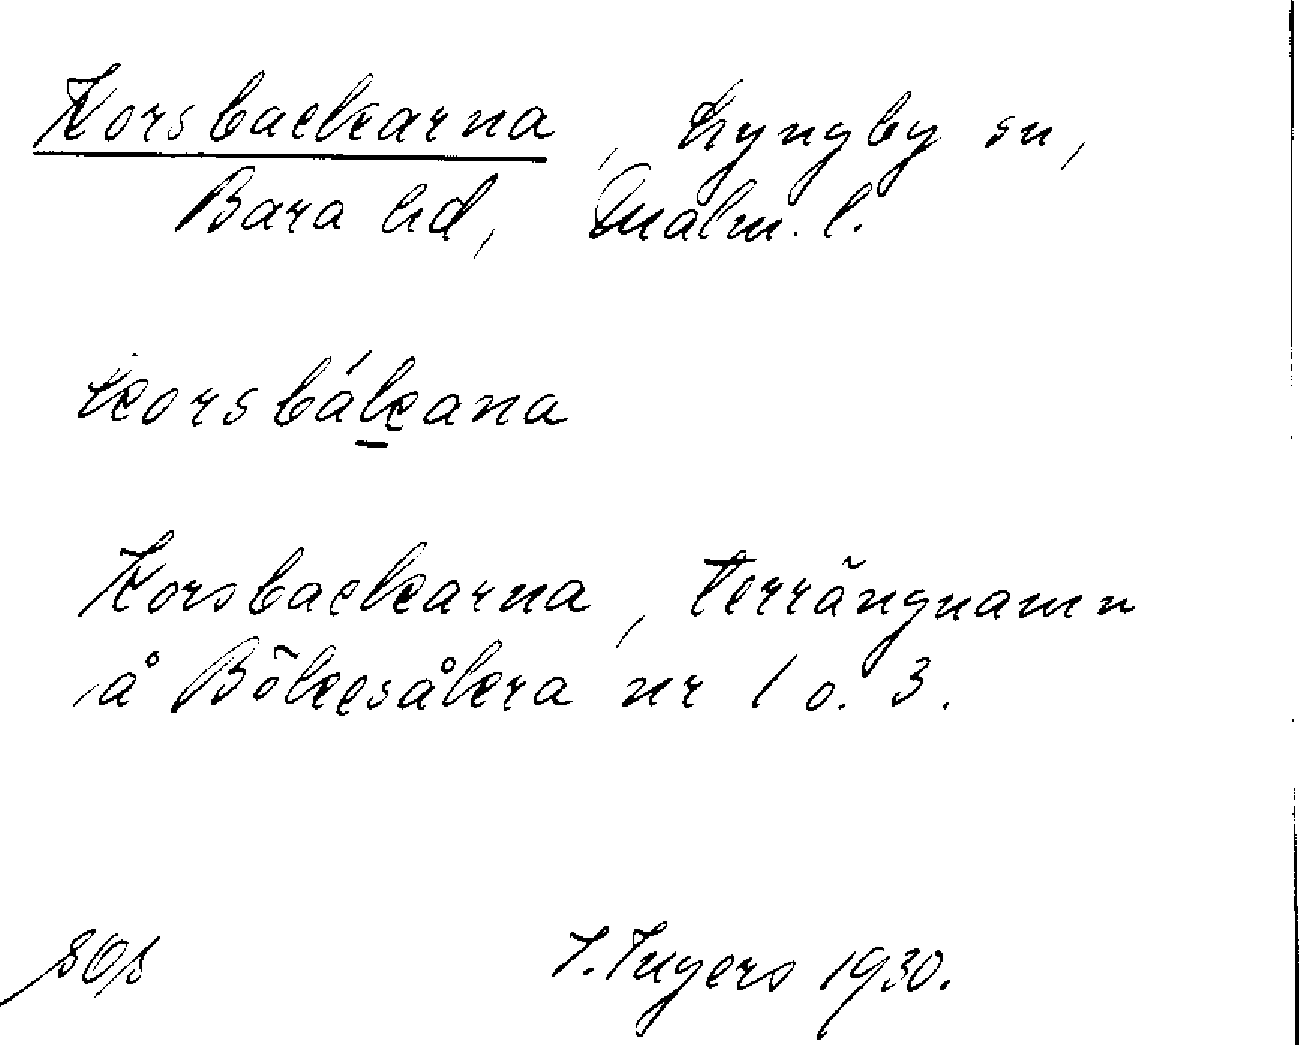 Korsbackarna, Lyngby sn,
Bara hd, Malm. l.
korsbákana
Korsbackarna, terrängnamn
å Bökesåkra nr 1 o. 3.
I. Ingers 1930.